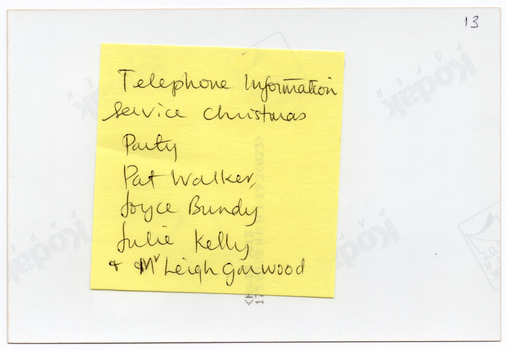 13
Telephone Information
Service Christmas
Party
Pat Walker,
Joyce Bundy
Julie Kelly
+ Mr Leigh Garwood
Kodak
Kodak
Kodak
Kodak